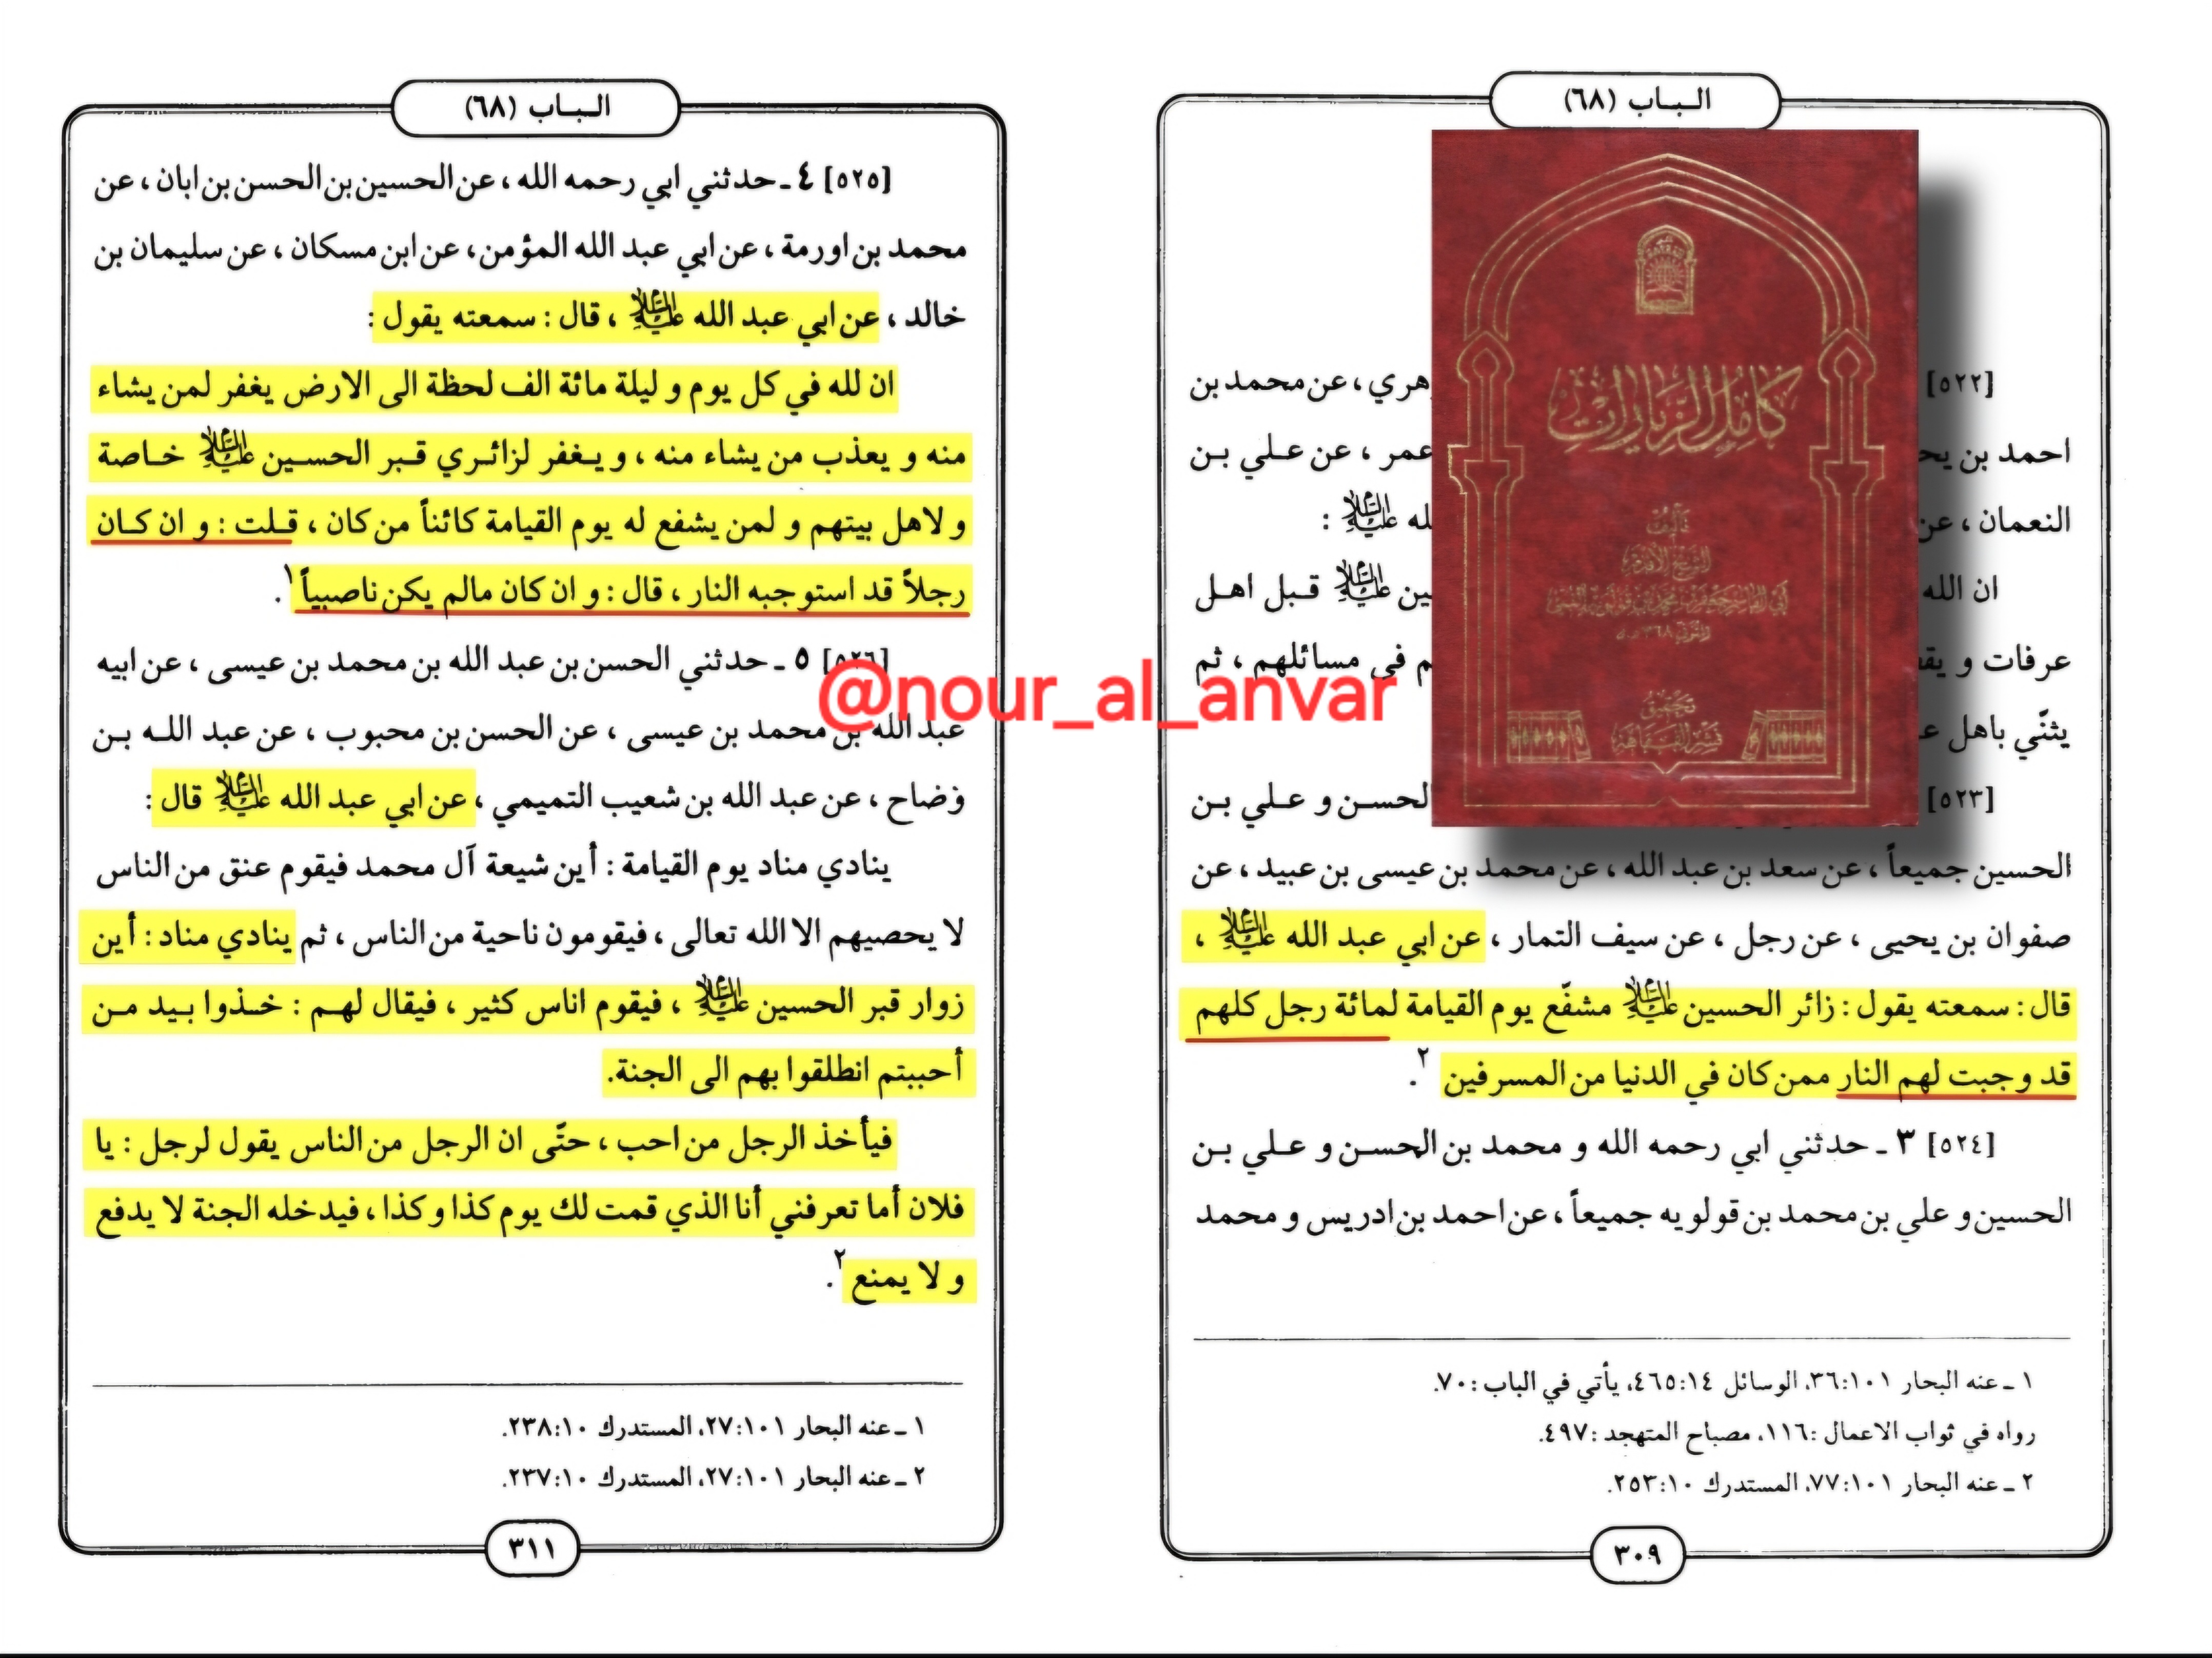 الـبـاب (٦٨)
[٥٢٢]
هري ، عن محمد بن
احمد بن يح
عمر ، عن عـلي بـن
النعمان ، عن
له عليه السلام :
ان الله
ين عليه السلام قـبل اهـل
عرفات و يقض
م في مسائلهم ، ثم
يثنّي باهل ع
[٥٢٣]
لحسـن و عـلي بـن
الحسين جميعاً ، عن سعد بن عبد الله ، عن محمد بن عيسى بن عبيد ، عن
صفوان بن يحيى ، عن رجل ، عن سيف التمار ، عن ابي عبد الله عليه السلام ،
قال : سمعته يقول : زائر الحسين عليه السلام مشفّع يوم القيامة لمائة رجل كلهم
قد وجبت لهم النار ممن كان في الدنيا من المسرفين ٢.
[٥٢٤] ٣ ـ حدثني ابي رحمه الله و محمد بن الحسـن و عـلي بـن
الحسين و علي بن محمد بن قولويه جميعاً ، عن احمد بن ادريس و محمد
١ ـ عنه البحار ٣٦:١٠١، الوسائل ٤٦٥:١٤، يأتي في الباب : ٧٠.
رواه في ثواب الاعمال : ١١٦، مصباح المتهجد : ٤٩٧.
٢ ـ عنه البحار ٧٧:١٠١، المستدرك ٢٥٣:١٠.
٣٠٩
كامل الزيارات
تأليف
الشيخ الأقدم
أبي القاسم جعفر بن محمد بن قولويه القمي
المتوفى ٣٦٨ هـ ق
تحقيق
نشر الفقاهة
الـبـاب (٦٨)
[٥٢٥] ٤ ـ حدثني ابي رحمه الله ، عن الحسين بن الحسن بن ابان ، عن
محمد بن اورمة ، عن ابي عبد الله المؤمن ، عن ابن مسكان ، عن سليمان بن
خالد ، عن ابي عبد الله عليه السلام ، قال : سمعته يقول :
ان لله في كل يوم و ليلة مائة الف لحظة الى الارض يغفر لمن يشاء
منه و يعذب من يشاء منه ، و يـغفر لزائـري قـبر الحسـين عليه السلام خـاصة
و لاهل بيتهم و لمن يشفع له يوم القيامة كائناً من كان ، قـلت : و ان كـان
رجلاً قد استوجبه النار ، قال : و ان كان مالم يكن ناصبياً ١.
[٥٢٦] ٥ ـ حدثني الحسن بن عبد الله بن محمد بن عيسى ، عن ابيه
عبد الله بن محمد بن عيسى ، عن الحسن بن محبوب ، عن عبد اللـه بـن
وضاح ، عن عبد الله بن شعيب التميمي ، عن ابي عبد الله عليه السلام قال :
ينادي مناد يوم القيامة : أين شيعة آل محمد فيقوم عنق من الناس
لا يحصيهم الا الله تعالى ، فيقومون ناحية من الناس ، ثم ينادي مناد : أين
زوار قبر الحسين عليه السلام ، فيقوم اناس كثير ، فيقال لهـم : خـذوا بـيد مـن
أحببتم انطلقوا بهم الى الجنة.
فيأخذ الرجل من احب ، حتّى ان الرجل من الناس يقول لرجل : يا
فلان أما تعرفني أنا الذي قمت لك يوم كذا و كذا ، فيدخله الجنة لا يدفع
و لا يمنع ٢.
١ ـ عنه البحار ٢٧:١٠١، المستدرك ٢٣٨:١٠.
٢ ـ عنه البحار ٢٧:١٠١، المستدرك ٢٣٧:١٠.
٣١١
@nour_al_anvar